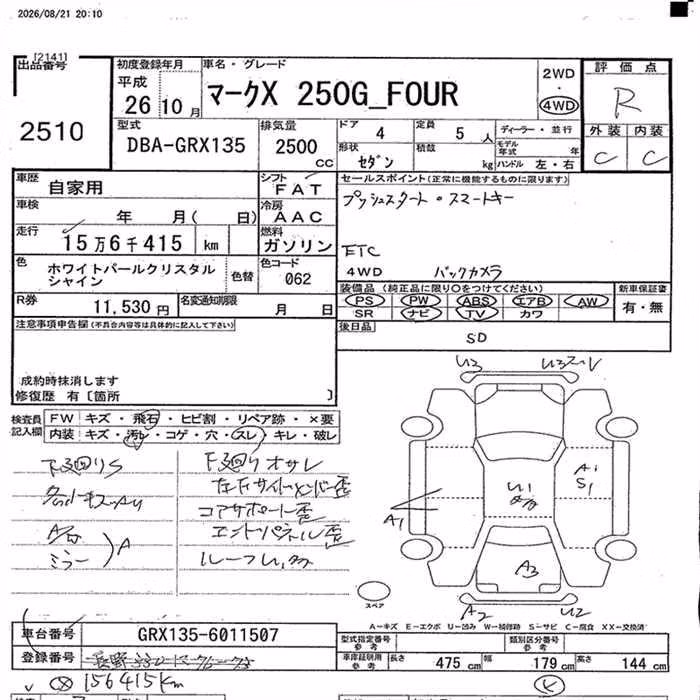 2026/08/21 20:10
[2141]
出品番号
2510
初度登録年月
平成
26 10 月
車名・グレード
マークX 250G_FOUR
2WD
4WD
評価点
R
外装 内装
C C
型式
DBA-GRX135
排気量
2500 cc
ドア 4
定員 5 人
形状 セダン
積載 kg
ディーラー・並行
モデル年式 年
ハンドル 左・右
車歴
自家用
シフト
FAT
セールスポイント(正常に機能するものに限ります)
プッシュスタート・スマートキー
車検
年 月( 日)
冷房
AAC
走行
15万6千415 km
燃料
ガソリン
ETC
4WD バックカメラ
色
ホワイトパールクリスタル
シャイン
色替
色コード
062
装備品(純正品に限り○をつけてください)
PS PW ABS エアB AW
SR ナビ TV カワ
新車保証書
有・無
R券
11,530 円
名変通知期限
月 日
後日品
SD
注意事項申告欄(不具合内容等は具体的に記入して下さい)
成約時抹消します
修復歴 有〔箇所 〕
検査員
記入欄
FW キズ・飛石・ヒビ割・リペア跡・×要
内装 キズ・汚レ・コゲ・穴・スレ・キレ・破レ
下廻りS
ミラー
A
下廻りオサレ
左右サイドメンバー歪
コアサポート歪
エンドパネル歪
U3
U1
A1
S1
A1
A3
A2
U2
スペア
A-キズ E-エクボ U-凹み W-補修跡 S-サビ C-腐食 XX-交換済
車台番号
GRX135-6011507
登録番号
型式指定番号
参考
類別区分番号
参考
車庫証明用
参考
長さ 475 cm
幅 179 cm
高さ 144 cm
156415km